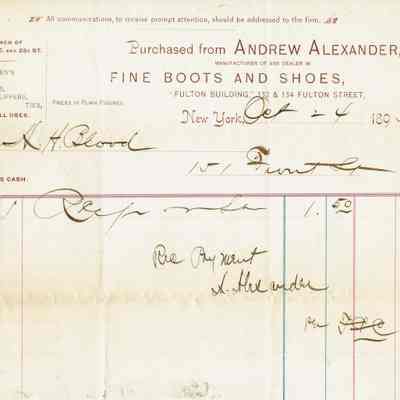 All communications, to receive prompt attention, should be addressed to the firm.
Purchased from ANDREW ALEXANDER,
MANUFACTURER OF AND DEALER IN
FINE BOOTS AND SHOES,
"FULTON BUILDING," 132 & 134 FULTON STREET,
PRICES IN PLAIN FIGURES.
TIES,
New York, Oct 24 189
A. H. Blood
151 Front St
S CASH.
1. 50
Rec Payment
A. Alexander